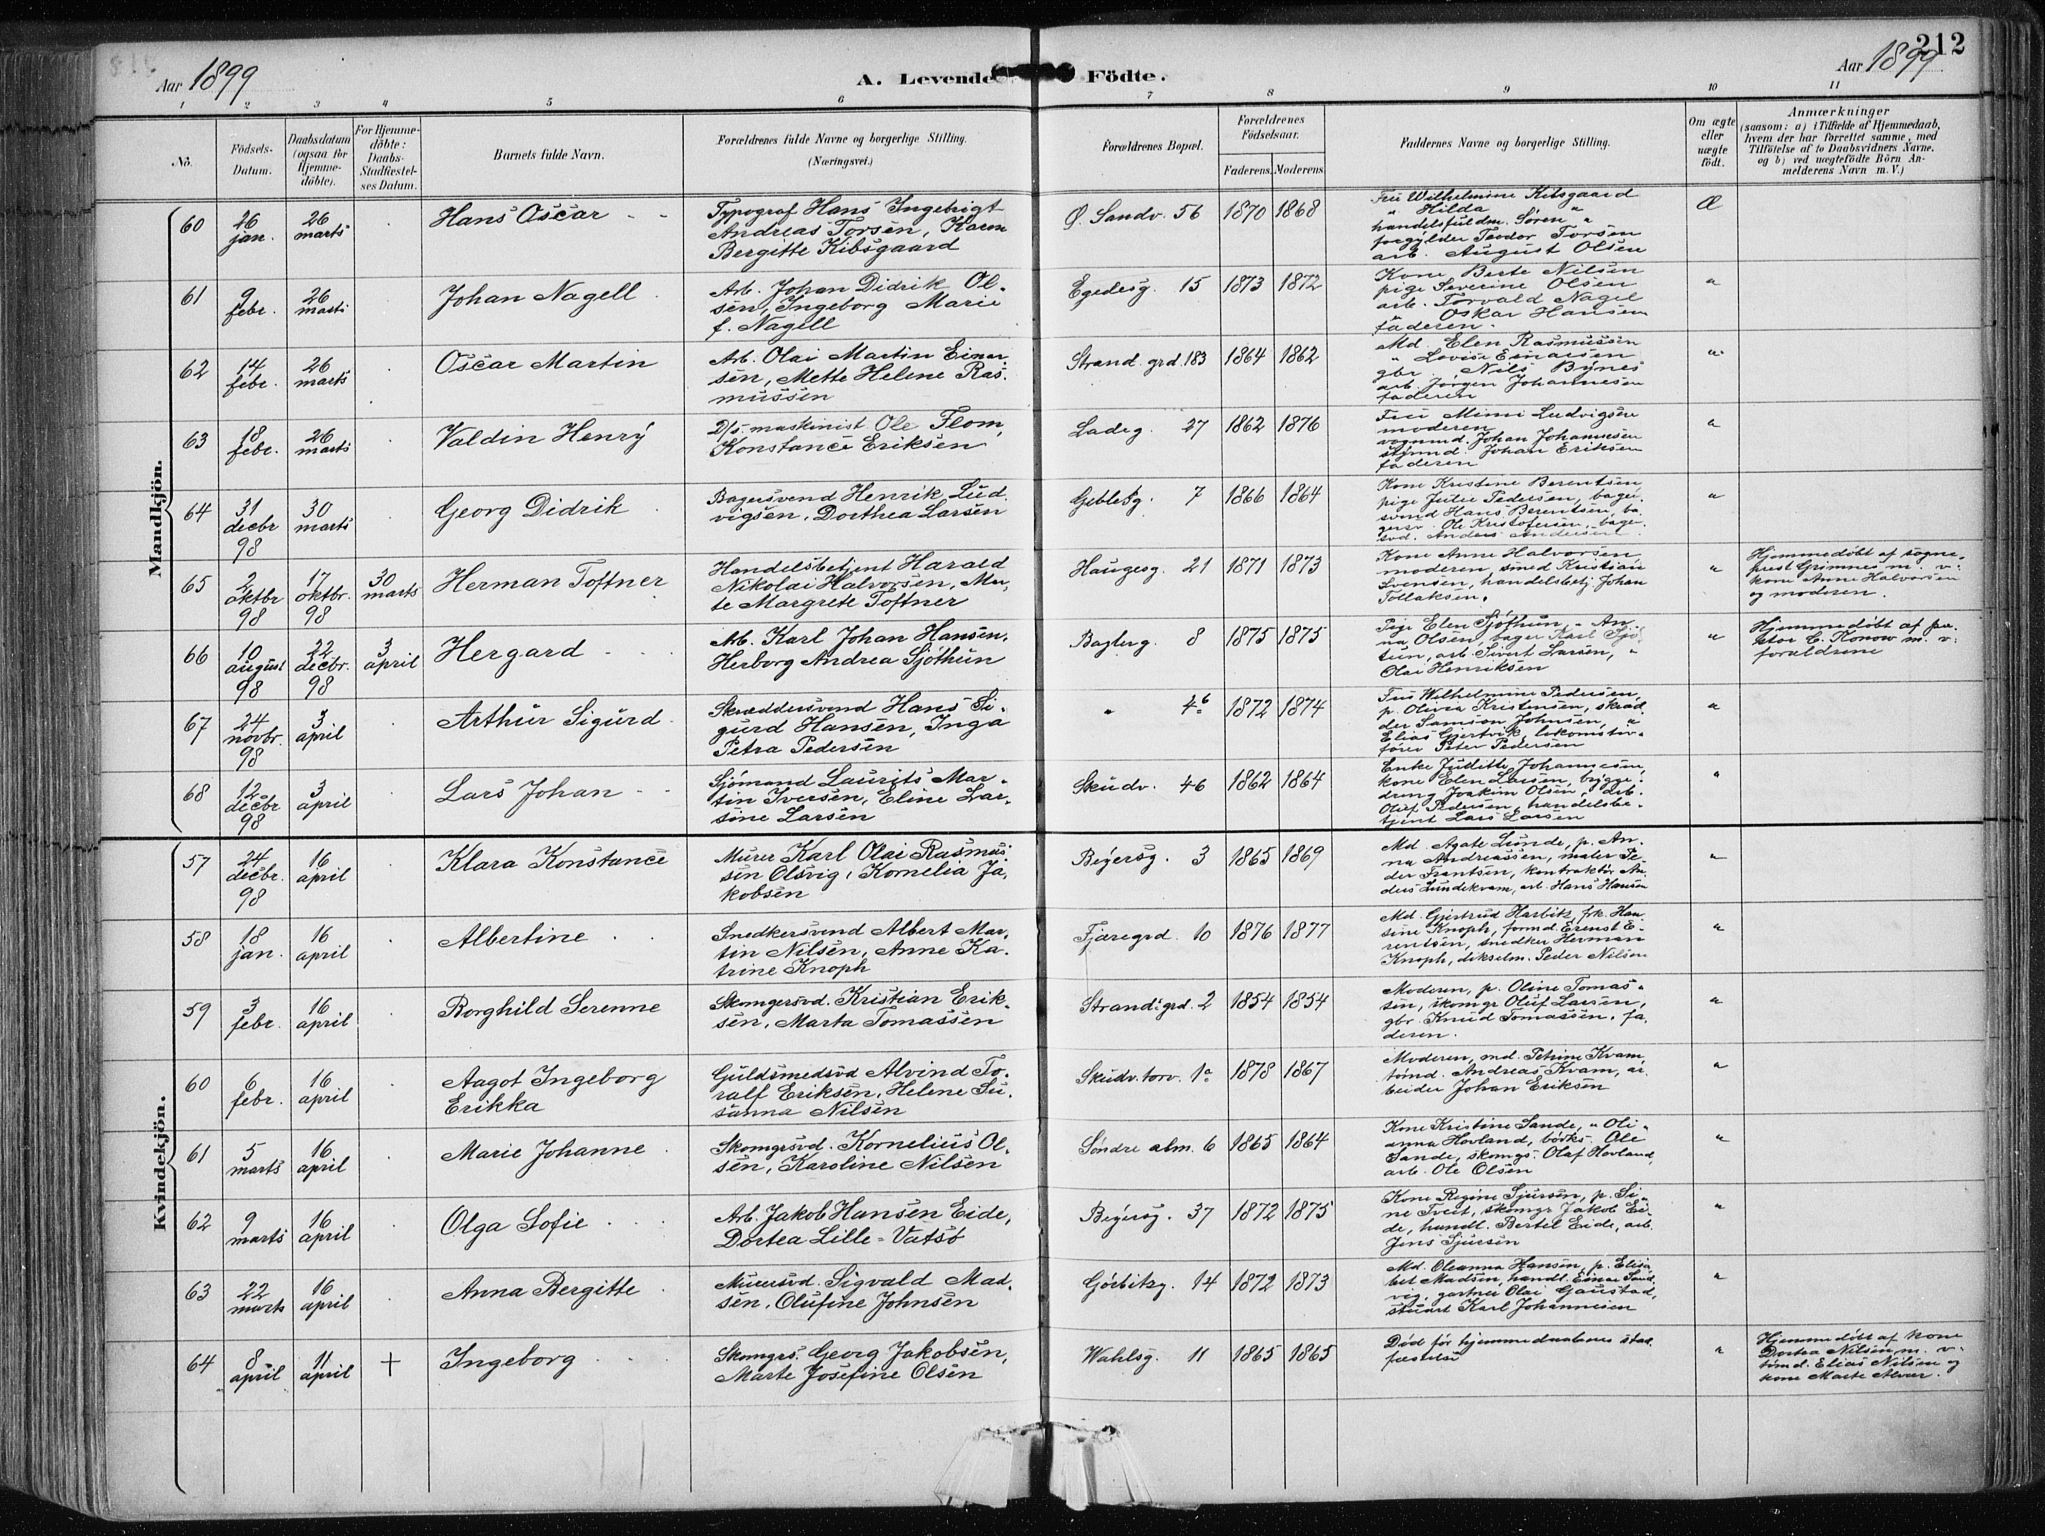 212
Aar 1899
A. Levende Födte.
Aar 1899
1 2 3 4 5 6 7 8 9 10 11
No.
Födsels-Datum.
Daabsdatum (ogsaa for Hjemme-döbte).
For Hjemme-döbte: Daabs-Stadfæstel-ses Datum.
Barnets fulde Navn.
Forældrenes fulde Navne og borgerlige Stilling.
(Næringsvei.)
Forældrenes Bopæl.
Forældrenes Födselsaar.
Faderens. Moderens
Faddernes Navne og borgerlige Stilling.
Om ægte eller uægte födt.
Anmærkninger
(saasom: a) i Tilfælde af Hjemmedaab,
hvem der har forrettet samme, med
Tilföielse af to Daabsvidners Navne,
og b) ved uægtefödte Börn An-
melderens Navn m. V.)
Mandkjön.
60 26 jan. 26 marts Hans Oscar
Typograf Hans Ingebrigt
Andreas Torsen, Karen
Bergitte Kibsgaard
Ø. Sandv. 56 1870 1868
Fru Wilhelmine Kibsgaard
" Hilda "
handelsfuldm. Søren "
forgylder Teodor Torsen
arb. August Olsen
Æ
61 9 febr. 26 marts Johan Nagell
Arb. Johan Didrik Ol-
sen, Ingeborg Marie
f. Nagell
Egedesg. 15 1873 1872
Kone Berte Nilsen
pige Severine Olsen
arb. Torvald Nagel
" Oskar Hansen
faderen.
"
62 14 febr. 26 marts Oscar Martin
Arb. Olai Martin Einar-
sen, Mette Helene Ras-
mussen
Strand. grd 183 1864 1862
Md. Elen Rasmussen
" Lovise Einarsen
gbr. Nils Bynes
arb. Jørgen Johannesen
faderen
"
63 18 febr. 26 marts Valdin Henry
D/s-maskinist Ole Flom,
Konstance Eriksen
Ladeg. 27 1862 1876
Frue Mimi Ludvigsen
moderen
vognmd. Johan Johannesen
styrmd. Johan Eriksen
faderen
"
64 31 decbr 98 30 marts Georg Didrik
Bagersvend Henrik Lud-
vigsen, Dorthea Larsen
Geblesg. 7 1866 1864
Kone Kristine Berentsen
pige Julie Pedersen, bager-
svend Hans Berentsen, ba-
gersv. Ole Kristofersen, bager-
svd. Anders Andersen.
"
65 2 oktbr 98 17 oktbr. 98 30 marts Herman Toftner
Handelsbetjent Harald
Nikolai Halvorsen, Mar-
te Margrete Toftner
Haugesg. 21 1871 1873
Kone Anne Halvorsen
moderen, smed Kristian
Svensen, handelsbetj. Johan
Tollaksen.
"
Hjemmedøbt af sogne-
prest Grimnes m. v.
kone Anne Halvorsen
og moderen.
66 10 august 98 22 decbr. 98 3 april Hergard
Arb. Karl Johan Hansen,
Herborg Andrea Sjöthun
Bagterg. 8 1875 1875
Pige Elen Sjöthun, " An-
na Olsen, bager Karl Sjö-
tun, arb. Sivert Larsen, "
Olai Henriksen
"
Hjemmedøbt af pa-
stor C. Konow m. v.
forældrene
67 24 novbr. 98 3 april Arthur Sigurd
Skræddersvend Hans Si-
gurd Hansen, Inga
Petra Pedersen
" 4b 1872 1874
Frue Wilhelmine Pedersen,
p. Olivia Kristensen, skræd-
der Samson Johnsen, "
Elias Gjertvik, lokomotiv-
fører Peter Pedersen
"
68 12 decbr 98 3 april Lars Johan
Sjömand Laurits Mar-
tin Iversen, Eline Lar-
sine Larsen
Skudv. 46 1862 1864
Enke Juditte Johannesen,
kone Elen Larsen, brygge-
dreng Joakim Olsen, arb.
Oluf Pedersen, handelsbe-
tjent Lars Larsen
"
Kvindekjön.
57 24 decbr. 98 16 april Klara Konstance
Murer Karl Olai Rasmus-
sen Olsvig, Kornelia Ja-
kobsen
Beyersg. 3 1865 1869
Md. Agate Lunde, p. An-
na Andreassen, maler Pe-
der Frantsen, kontraktör An-
ders Lundekvam, arb. Hans Hansen
"
58 18 jan. 16 april Albertine
Snedkersvend Albert Mar-
tin Nilsen, Anne Ka-
trine Knoph
Fjæregrd. 10 1876 1877
Md. Gjertrud Harbitz, frk. Han-
sine Knoph, formd. Ernst E-
rentsen, snedker Herman
Knoph, dikselm. Peder Nilsen
"
59 3 febr. 16 april Borghild Serenne
Skomgersvd. Kristian Erik-
sen, Marta Tomassen
Strandsgrd. 2 1854 1854
Moderen, p. Oline Tomas-
sen, skomgr Oluf Larsen,
gbr. Knud Tomassen, fa-
deren.
"
60 6 febr. 16 april Aagot Ingeborg
Erikka
Guldsmedsvd Alvind To-
ralf Eriksen, Helene Su-
sanna Nilsen
Skudv. torv. 1a 1878 1867
Moderen, md. Petrine Kvam,
tømd. Andreas Kvam, ar-
beider Johan Eriksen
"
61 5 marts 16 april Marie Johanne
Skomgrsvd. Kornelius Ol-
sen, Karoline Nilsen
Søndre alm. 6 1865 1864
Kone Kristine Sande, " Oli-
anna Hovland, bödks. Ole
Sande, skomgs. Olaf Hovland,
arb. Ole Olsen
"
62 9 marts 16 april Olga Sofie
Arb. Jakob Hansen Eide,
Dortea Lille-Vatsö
Beyersg. 37 1872 1875
Kone Regine Sjursen, p. Si-
ne Tveit, skomgr Jakob Ei-
de, handl. Bertel Eide, arb.
Jens Sjursen
"
63 22 marts 16 april Anna Bergitte
Murersvd. Sigvald Mad-
sen, Olufine Johnsen
Görbitzg. 14 1872 1873
Md. Oleanna Hansen, p. Elisa-
bet Madsen, handl. Einar Sand-
vig, gartner Olai Gaustad,
stuart Karl Johannesen
"
64 8 april 11 april + Ingeborg
Skomgrs. Georg Jakobsen,
Marte Josefine Olsen
Wahlsg. 11 1865 1865
Död før hjemmedaabens stad-
fæstelse
"
Hjemmedøbt af kone
Dortea Nilsen m. v.
tømd. Elias Nilsen og
kone Marte Alver.